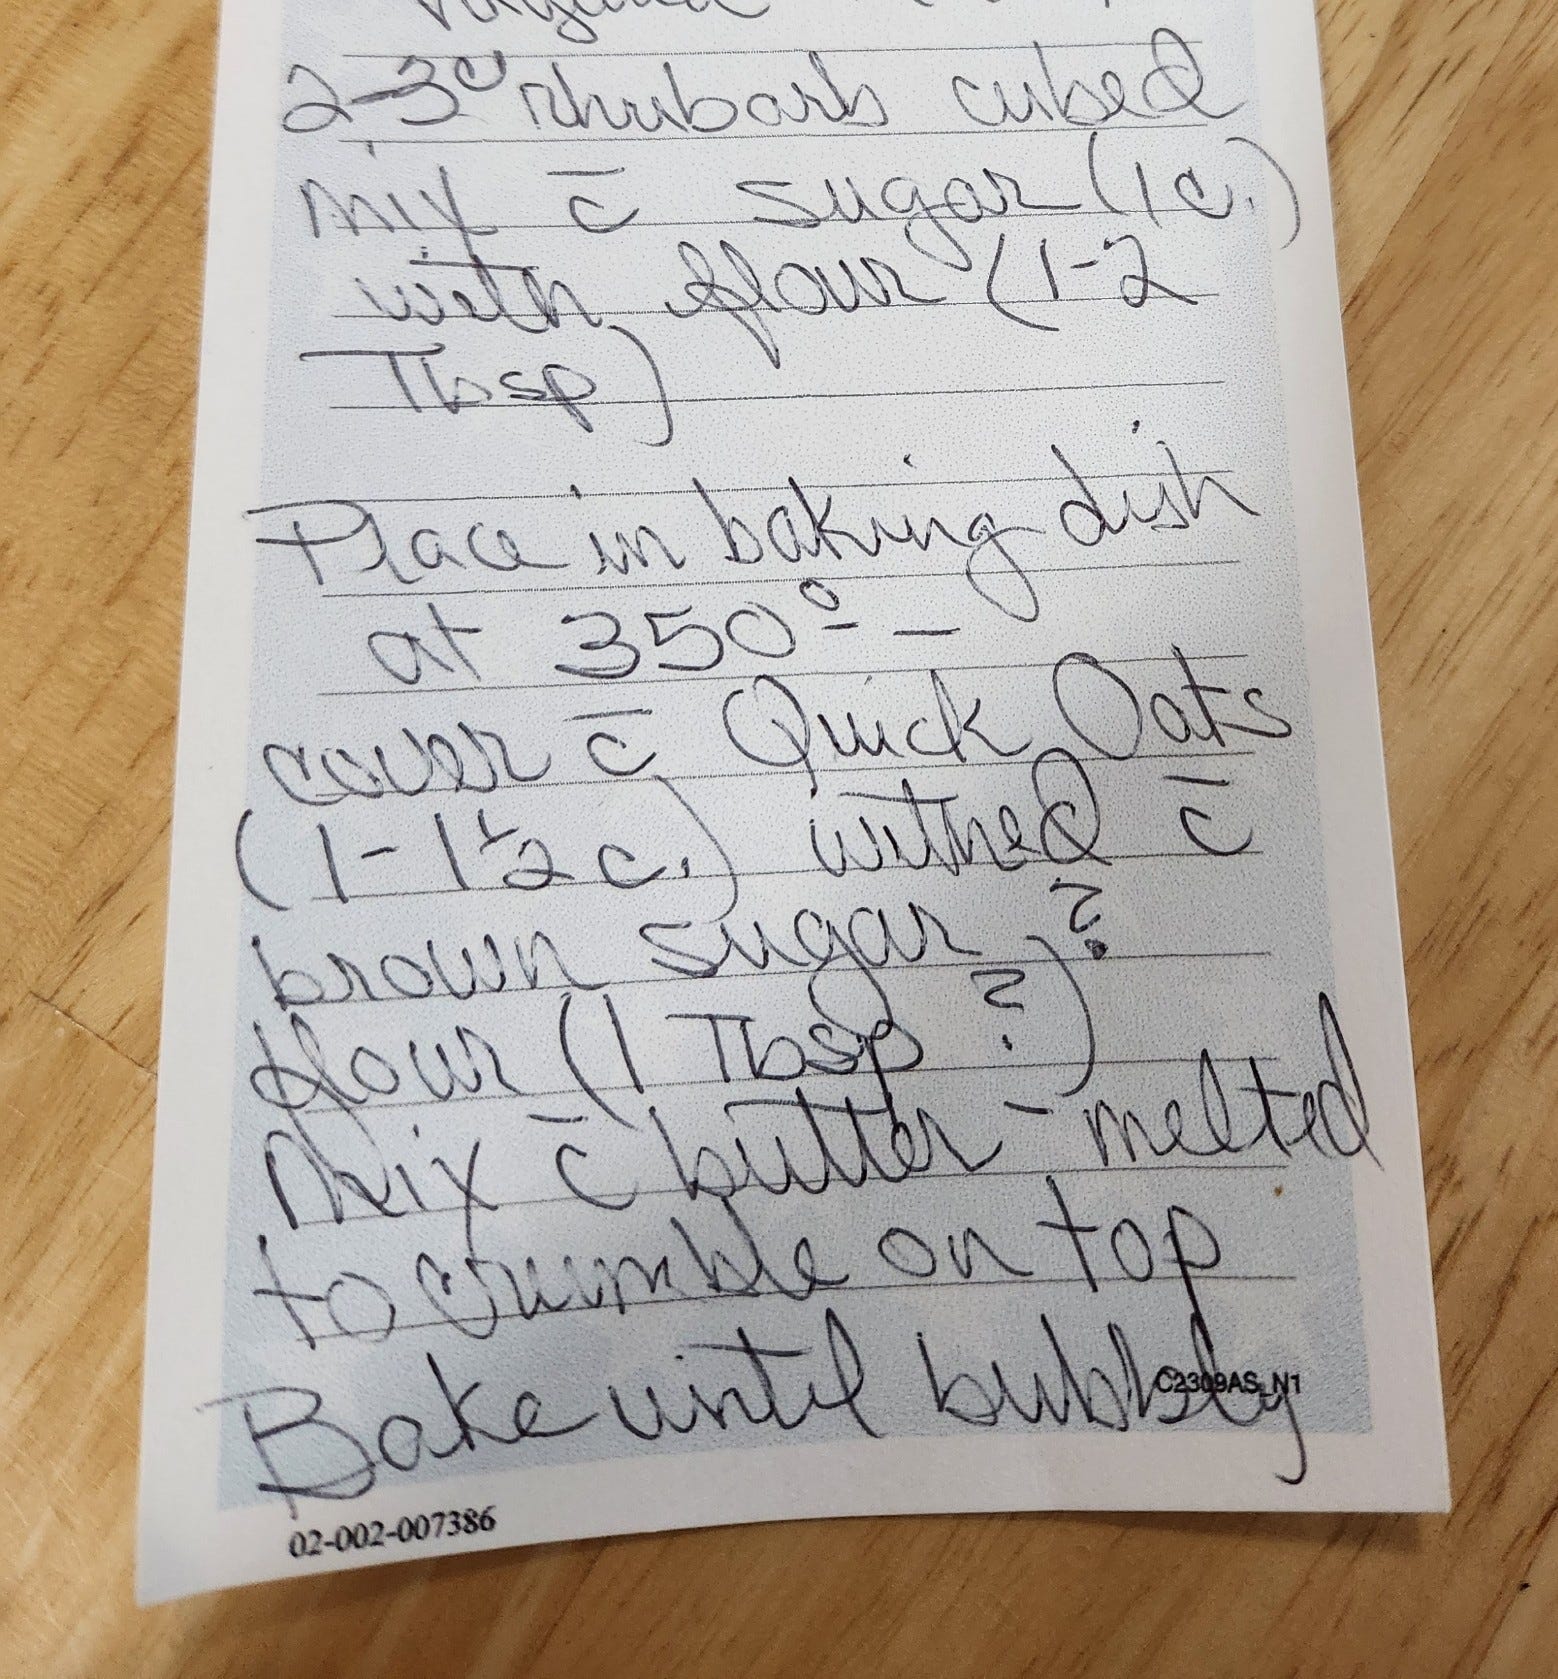 2-3c rhubarb cubed
mix c̄ sugar (1c.)
with flour (1-2
Tbsp)
Place in baking dish
at 350° - –
cover c̄ Quick Oats
(1-1½ c.) withed c̄
brown sugar ?
flour (1 Tbsp ?)
Mix c̄ butter - melted
to crumble on top
Bake until bubbly
C2309AS_N1
02-002-007386